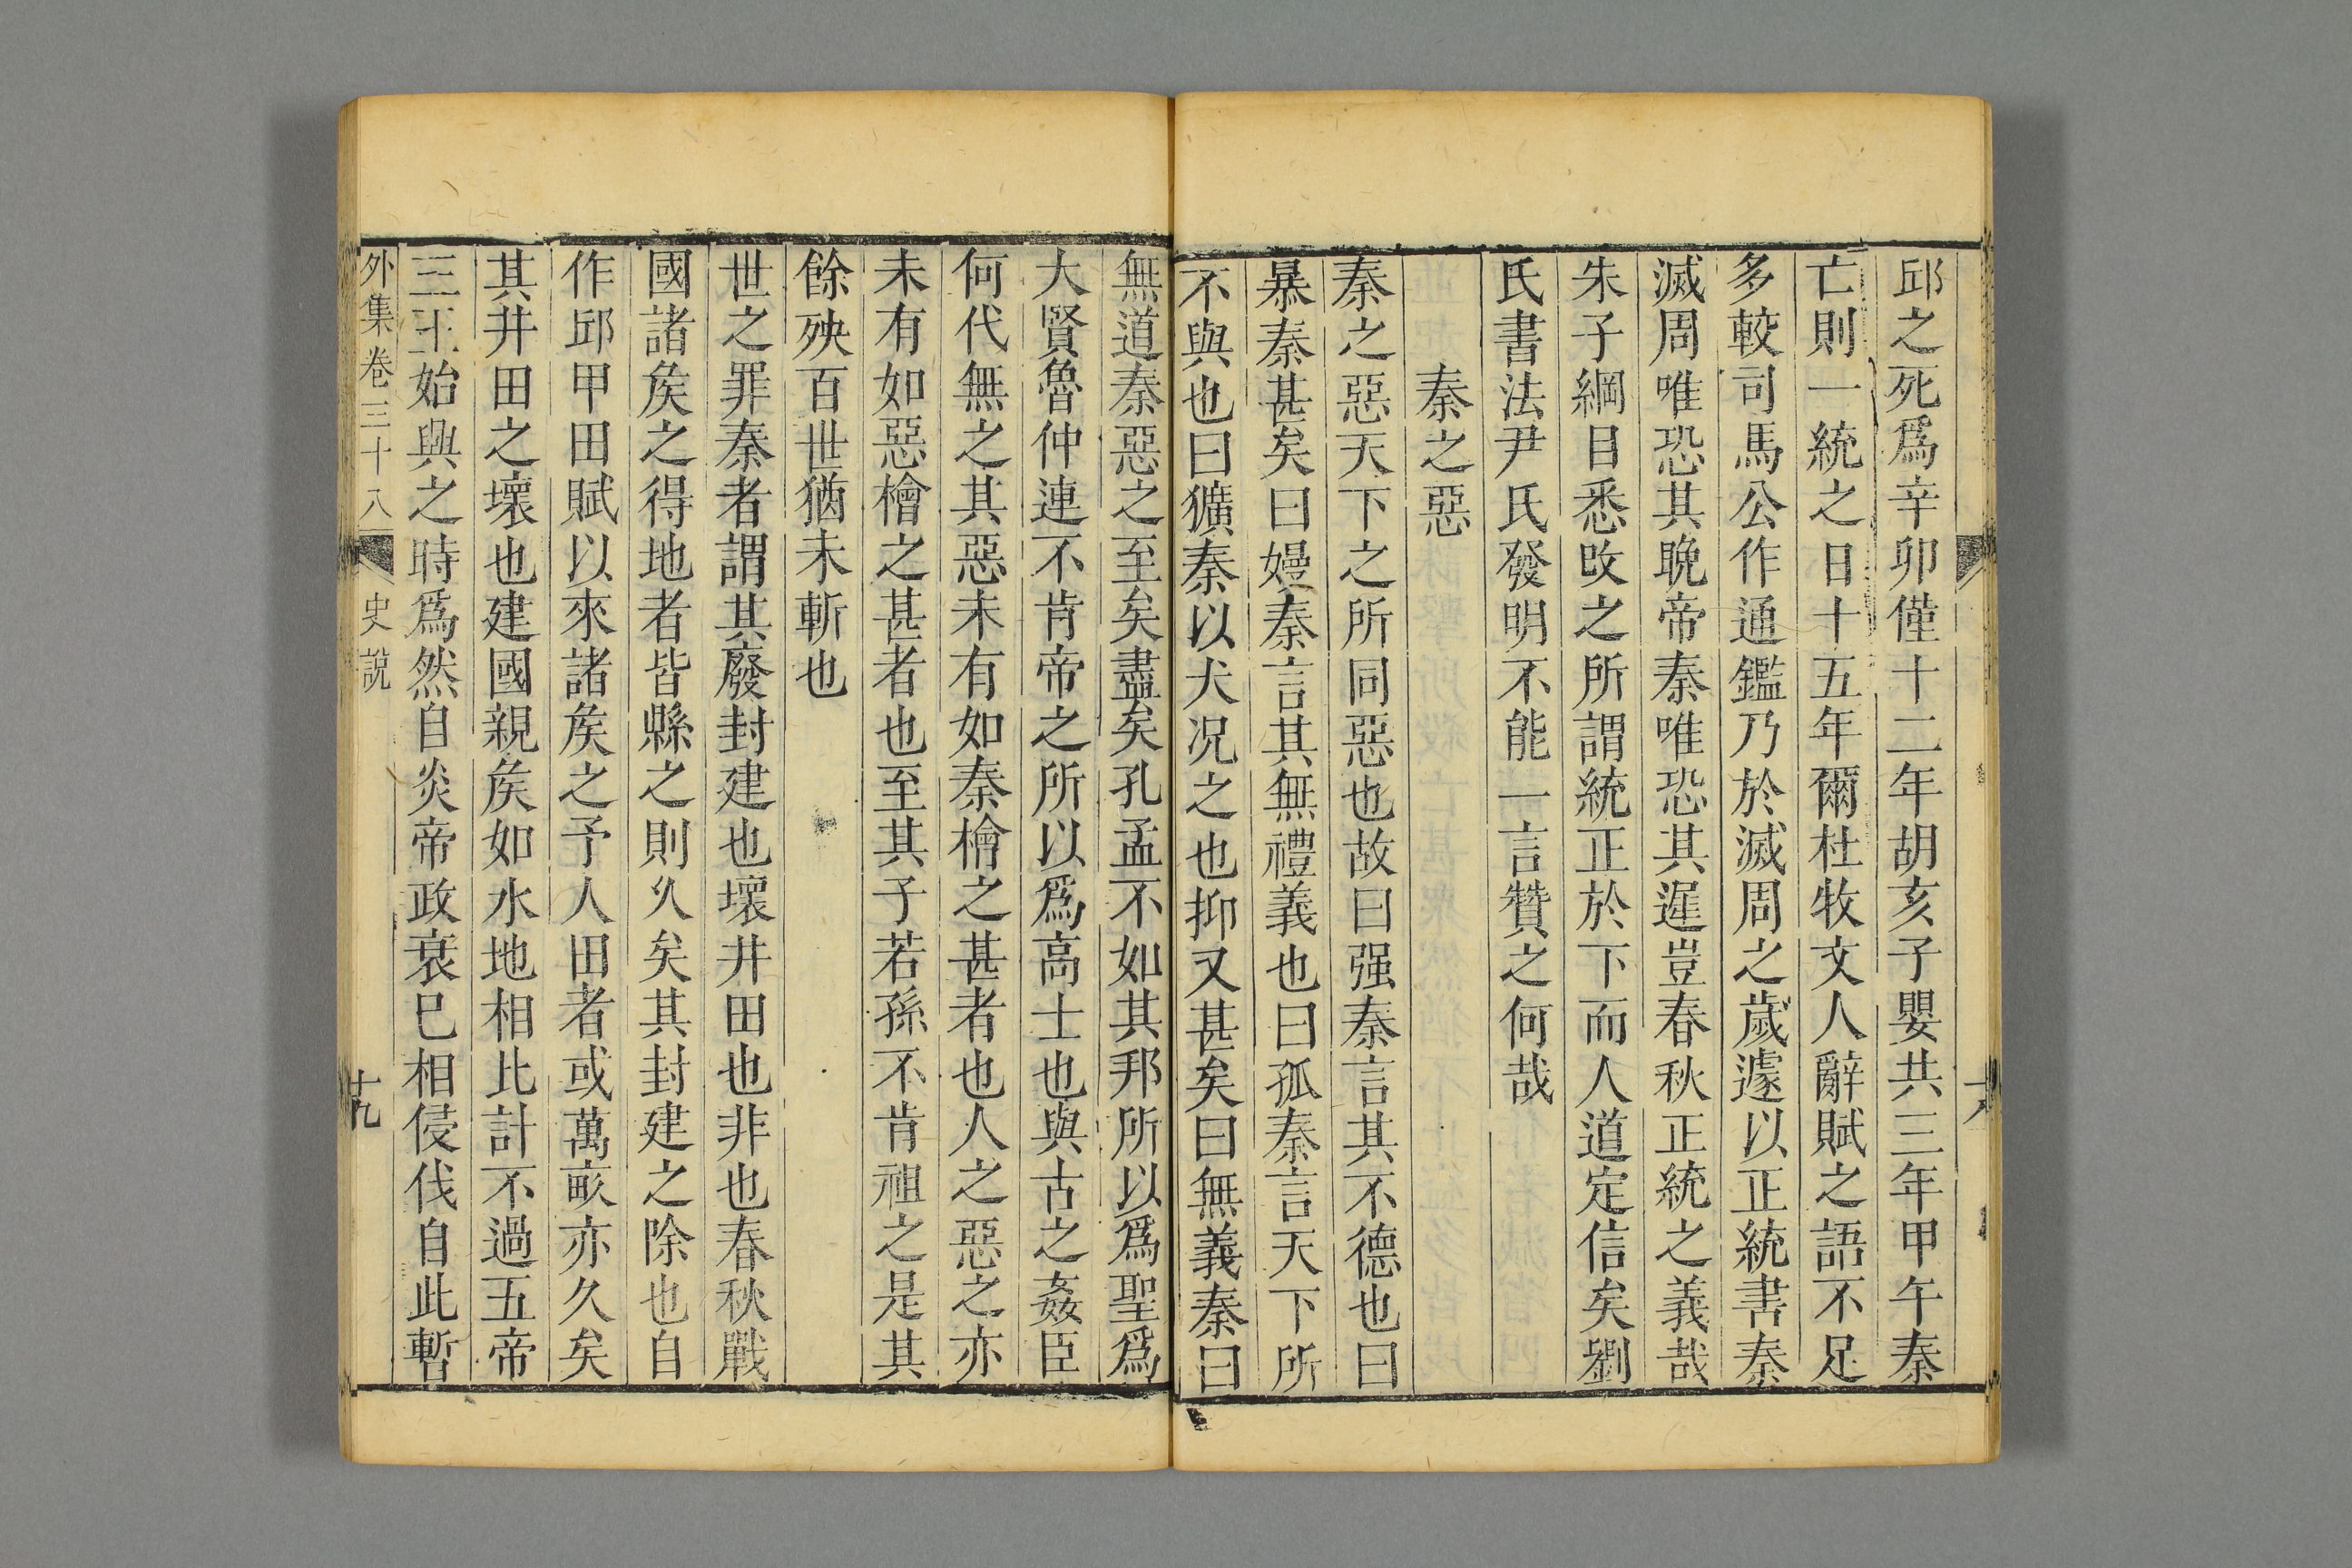 邱之死爲辛卯僅十二年胡亥子嬰共三年甲午秦
亡則一統之日十五年爾杜牧文人辭賦之語不足
多較司馬公作通鑑乃於滅周之歲遽以正統書秦
滅周唯恐其晚帝秦唯恐其遲豈春秋正統之義哉
朱子綱目悉改之所謂統正於下而人道定信矣劉
氏書法尹氏發明不能一言贊之何哉
秦之惡
秦之惡天下之所同惡也故曰强秦言其不德也曰
暴秦甚矣曰嫚秦言其無禮義也曰孤秦言天下所
不與也曰獷秦以犬况之也抑又甚矣曰無義秦曰
無道秦惡之至矣盡矣孔孟不如其邦所以爲聖爲
大賢魯仲連不肯帝之所以爲高士也與古之姦臣
何代無之其惡未有如秦檜之甚者也人之惡之亦
未有如惡檜之甚者也至其子若孫不肯祖之是其
餘殃百世猶未斬也
世之罪秦者謂其廢封建也壞井田也非也春秋戰
國諸矦之得地者皆縣之則久矣其封建之除也自
作邱甲田賦以來諸矦之予人田者或萬畝亦久矣
其井田之壞也建國親矦如水地相比計不過五帝
三王始興之時爲然自炎帝政衰已相侵伐自此暫
外集卷三十八 史說 十九